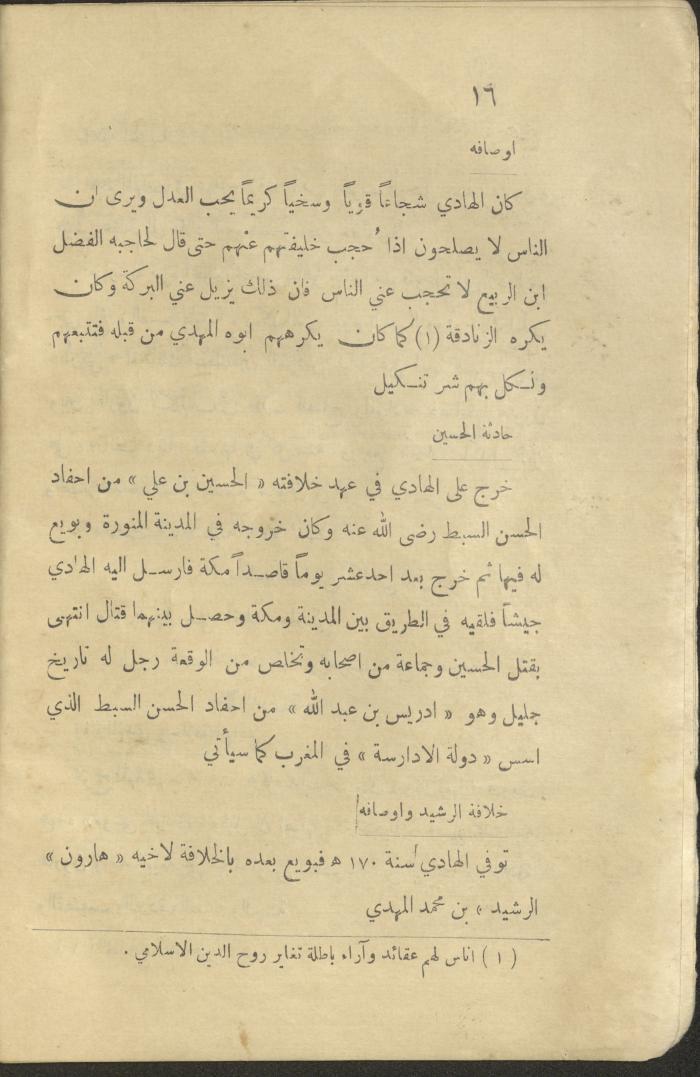 ١٦
اوصافه
كان الهادي شجاعاً قوياً وسخياً كريماً يحب العدل ويرى ان
الناس لا يصلحون اذا حُجب خليفتهم عنهم حتى قال لحاجبه الفضل
ابن الربيع لا تحجب عني الناس فان ذلك يزيل عني البركة وكان
يكره الزنادقة (١) كما كان يكرههم ابوه المهدي من قبله فتتبعهم
ونكل بهم شر تنكيل
حادثة الحسين
خرج على الهادي في عهد خلافته « الحسين بن علي » من احفاد
الحسن السبط رضى الله عنه وكان خروجه في المدينة المنورة وبويع
له فيها ثم خرج بعد احدعشر يوماً قاصداً مكة فارسل اليه الهادي
جيشاً فلقيه في الطريق بين المدينة ومكة وحصل بينهما قتال انتهى
بقتل الحسين وجماعة من اصحابه وتخلص من الوقعة رجل له تاريخ
جليل وهو « ادريس بن عبد الله » من احفاد الحسن السبط الذي
اسس « دولة الادارسة » في المغرب كما سيأتي
خلافة الرشيد واوصافه
توفي الهادي سنة ١٧٠ ه فبويع بعده بالخلافة لاخيه « هارون »
الرشيد » بن محمد المهدي
(١) اناس لهم عقائد وآراء باطلة تغاير روح الدين الاسلامي .